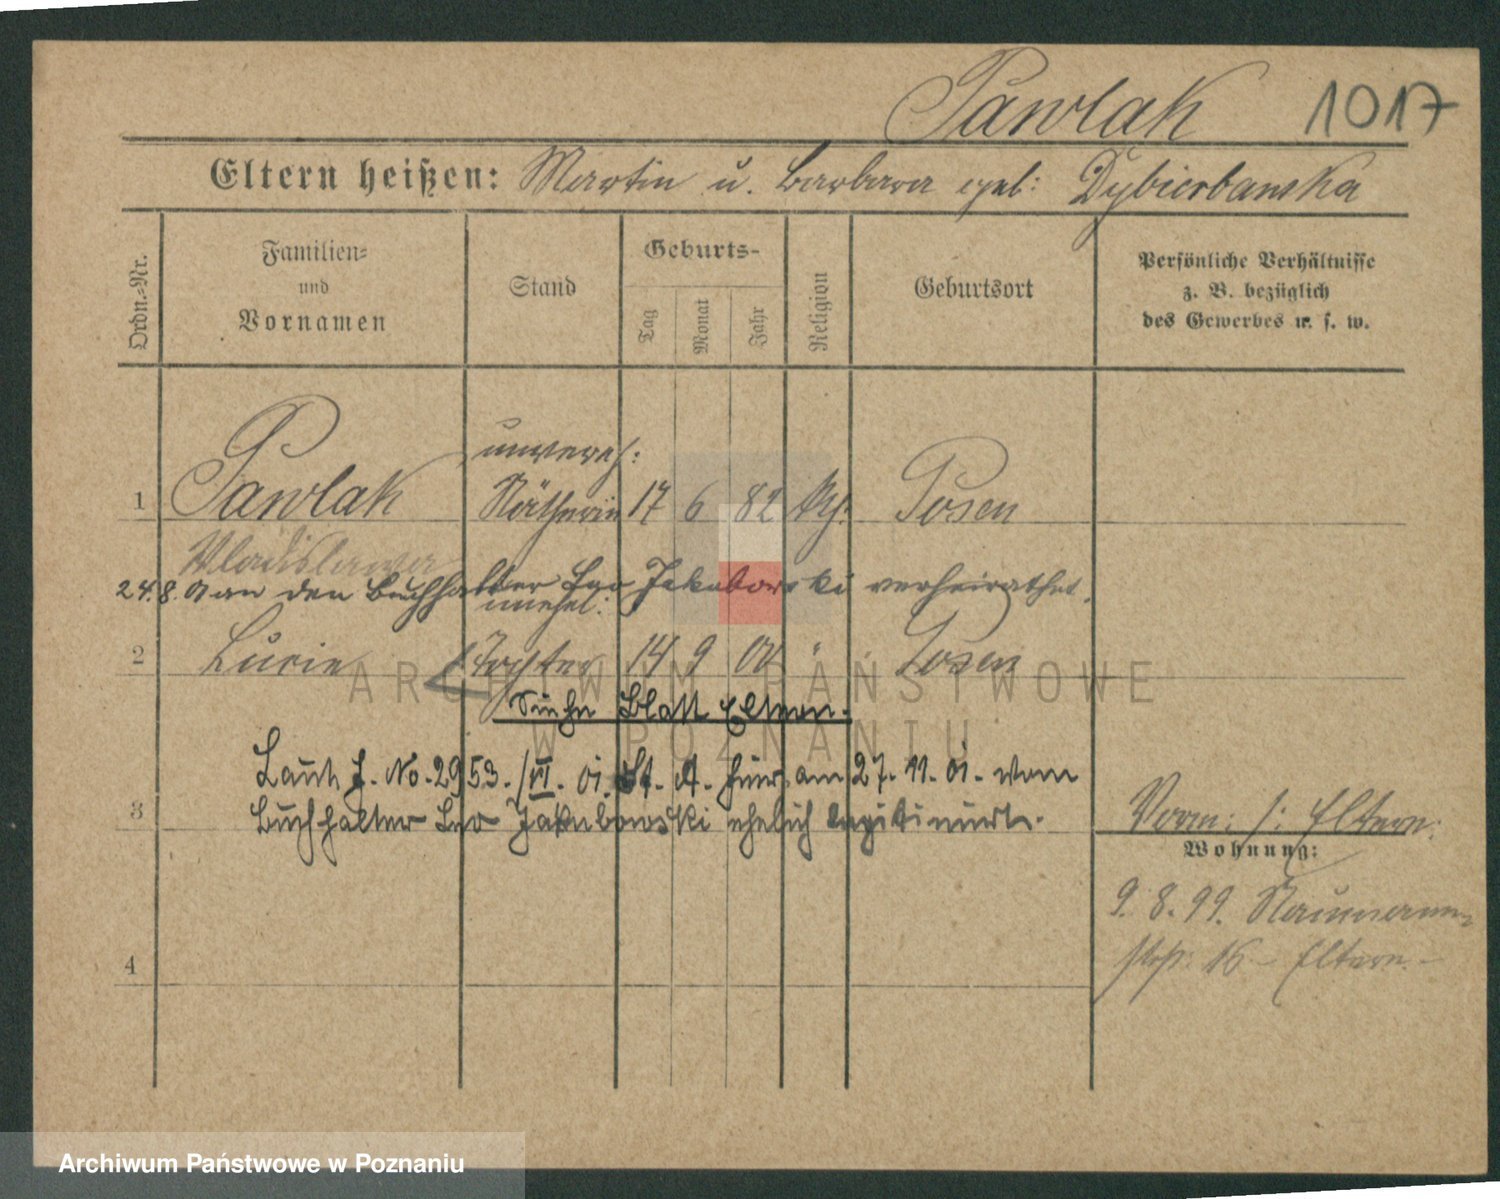 Pawlak 1017
Eltern heißen: Martin u. Barbara geb: Dybierbanska
Ordn.-Nr.
Familien-
und
Vornamen
Stand
Geburts-
Tag
Monat
Jahr
Religion
Geburtsort
Persönliche Verhältnisse
z. B. bezüglich
des Gewerbes u. s. w.
unvereh:
1 Pawlak Nätherin 17 6 82 Posen
Wladislawa
24.8. an den Buchhalter Leo Jakubowski verheirathet.
unehel:
2 Lucie Tochter 14 9 00 " Posen
Siehe Blatt Eltern.
Laut J. No. 2953./VI. 01. St. A. hier, am 27. 11. 01. vom
3 Buchhalter Leo Jakubowski ehelich legitimirt.
4
Vorm: /: Eltern:
Wohnung:
9. 8. 99. Naumann-
str: 16 – Eltern. –
ARCHIWUM PAŃSTWOWE
W POZNANIU
Archiwum Państwowe w Poznaniu